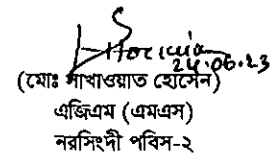 24.06.23
(মোঃ সাখাওয়াত হোসেন)
এজিএম (এমএস)
নরসিংদী পবিস-২